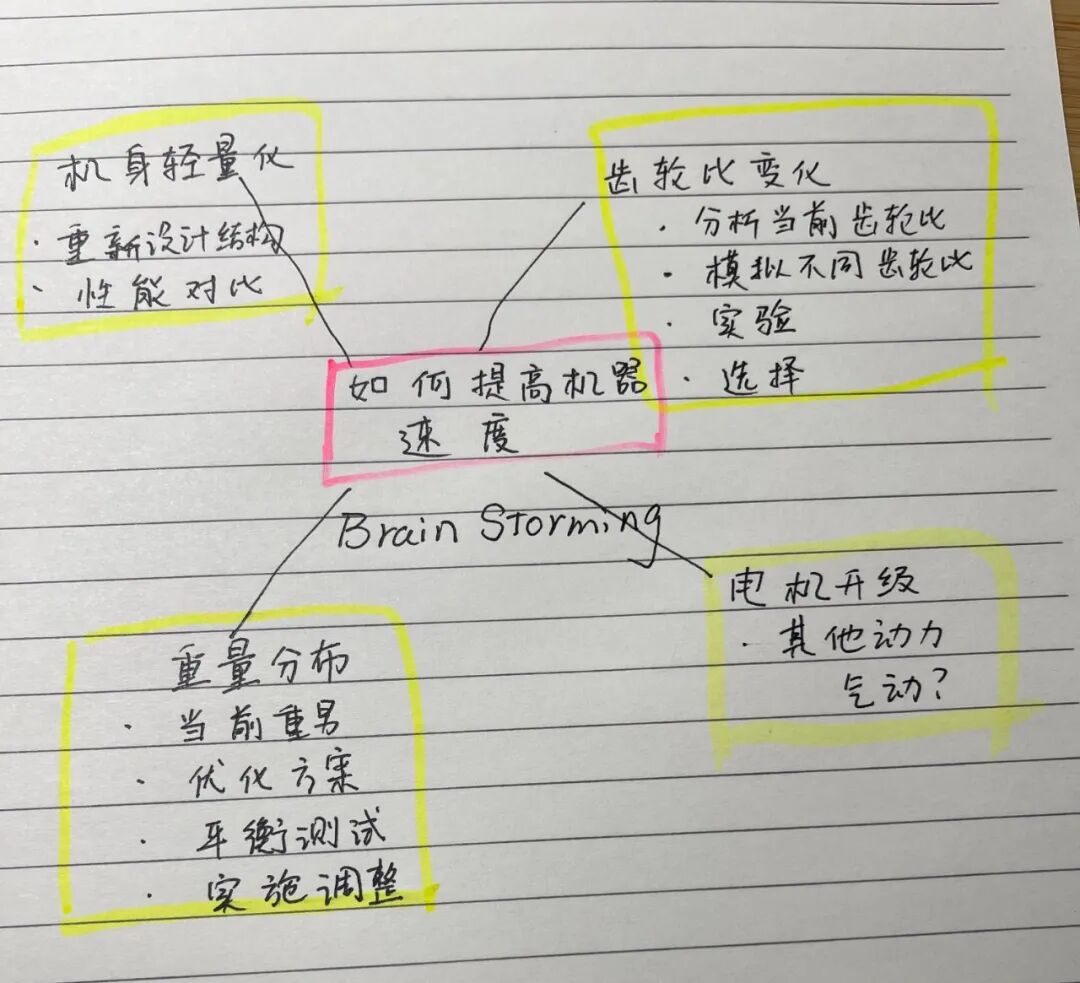 机身轻量化
· 重新设计结构
· 性能对比
齿轮比变化
· 分析当前齿轮比
· 模拟不同齿轮比
· 实验
· 选择
如何提高机器
速度
Brain Storming
电机开级
· 其他动力
气动?
重量分布
· 当前重
· 优化方案
· 平衡测试
· 实施调整